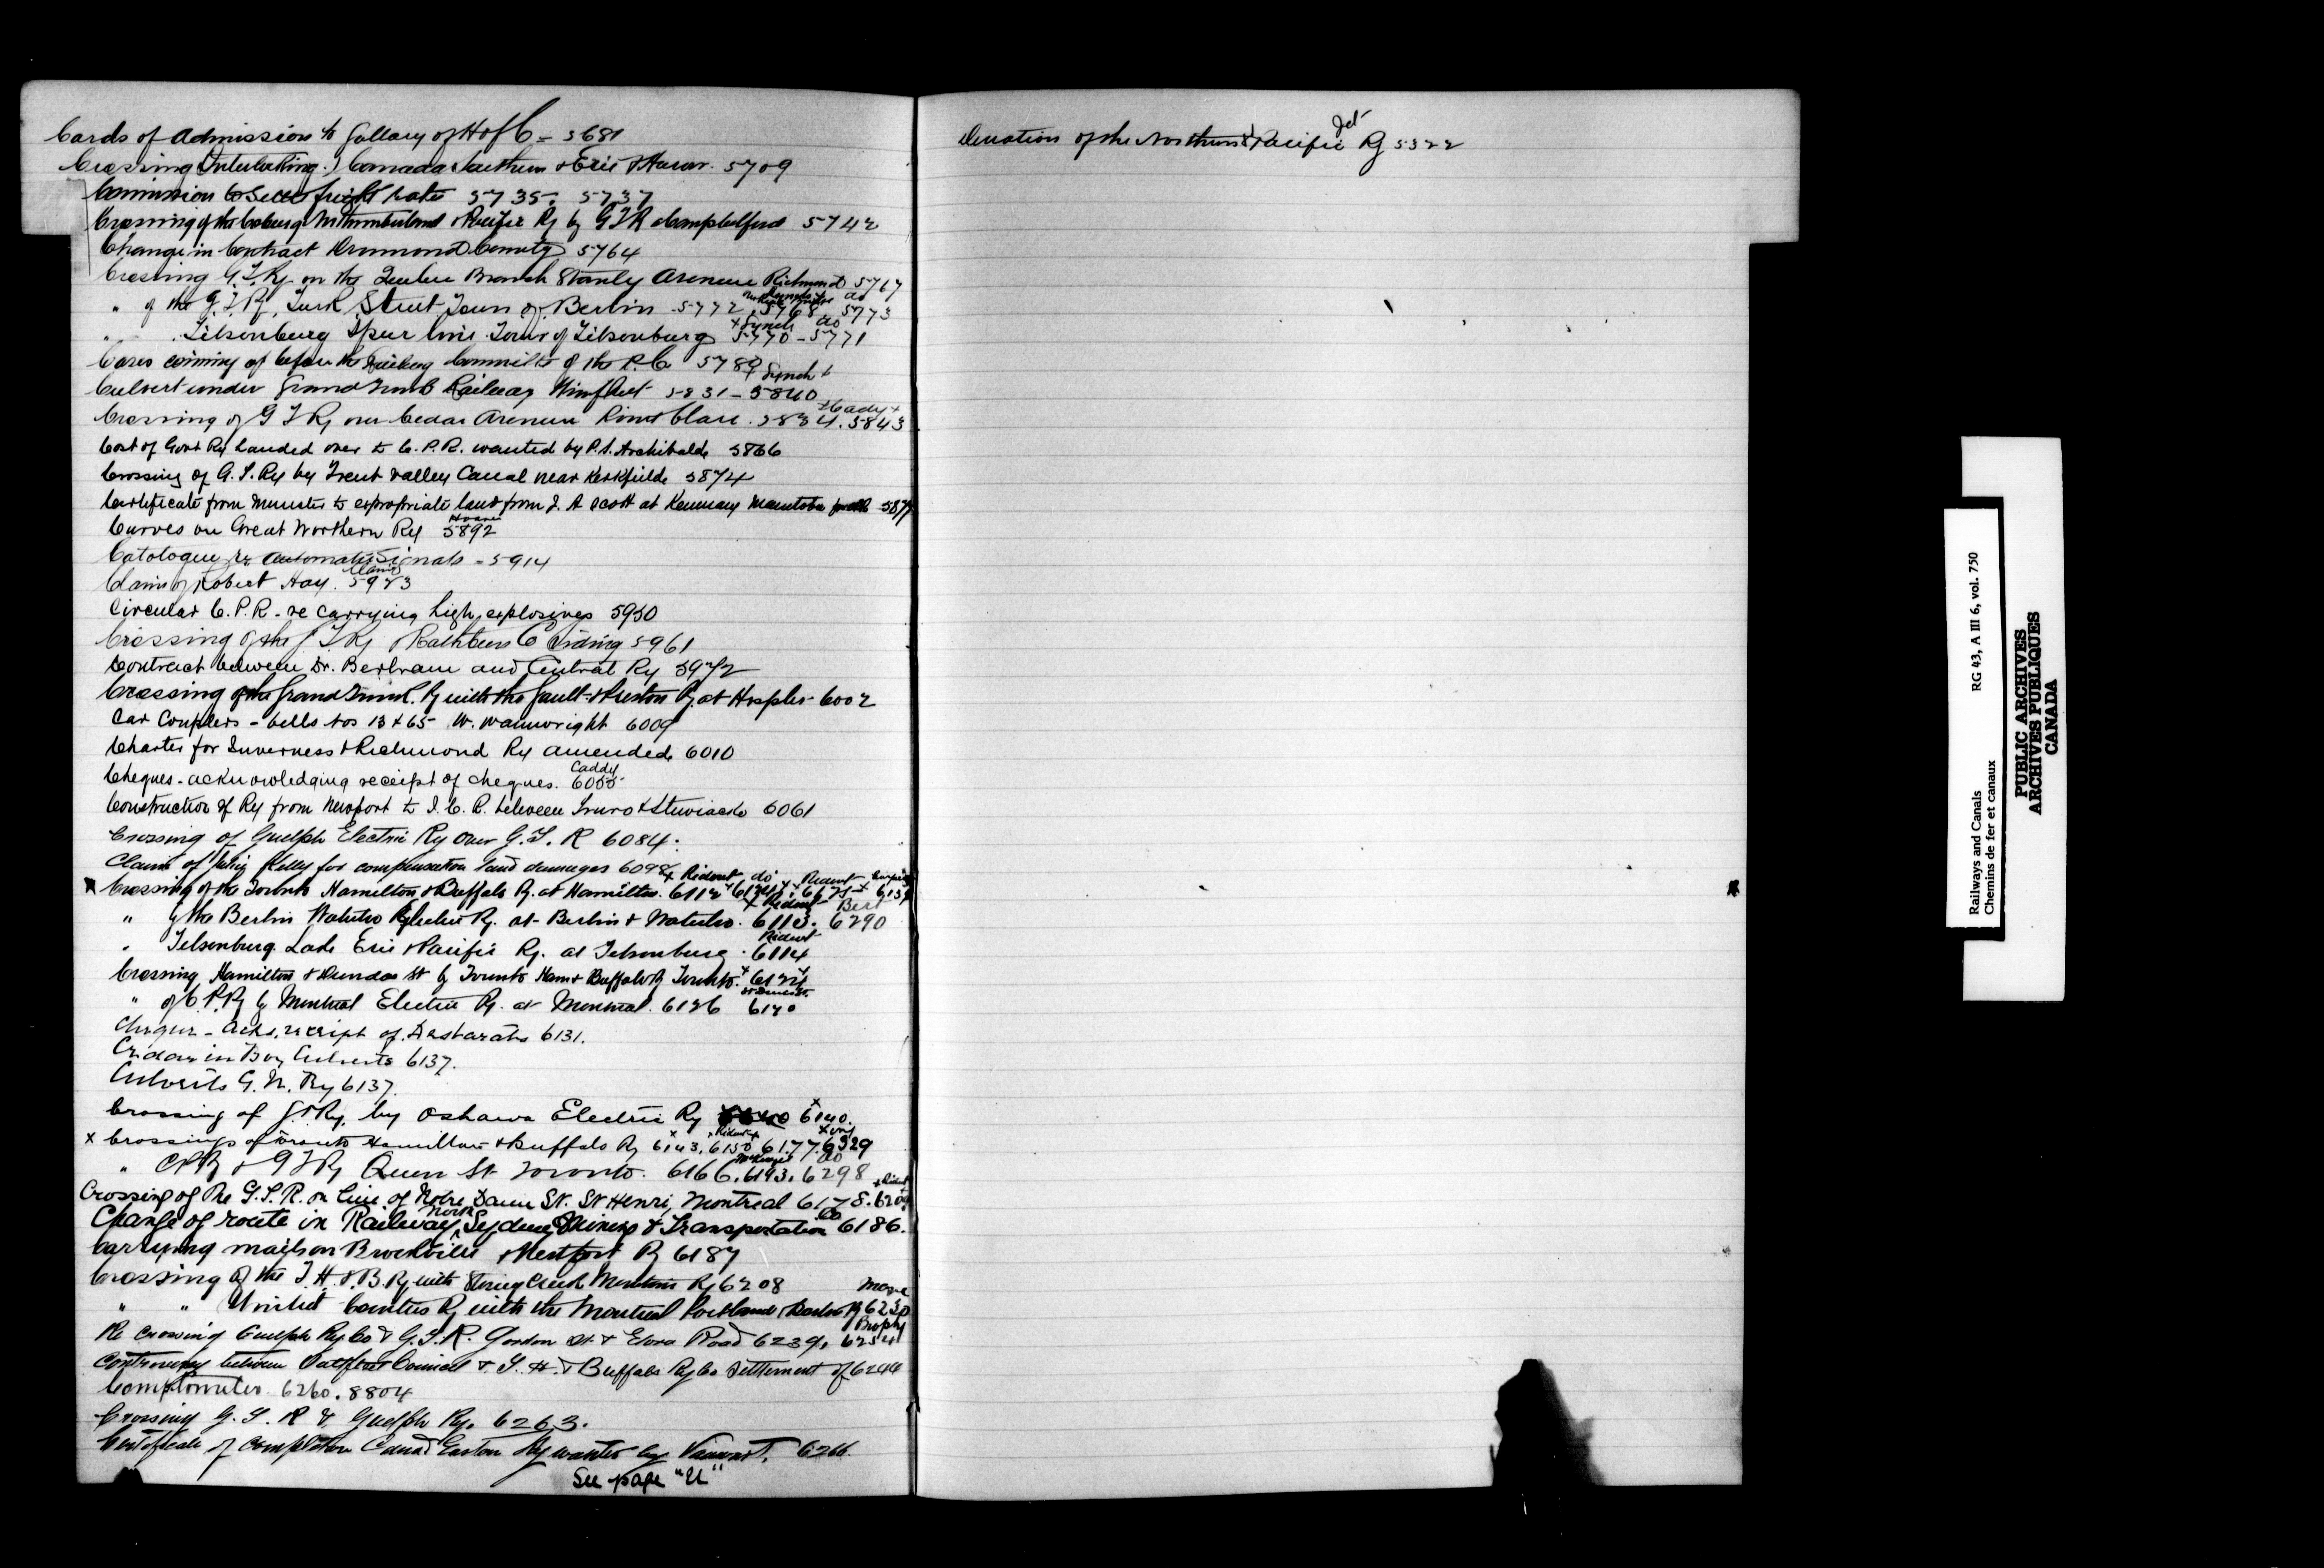 Cards of Admission to Gallary of H of C - 5681
Crossing (Interlocking) Canada Southern & Erie & Huron. 5709
Commission to freight rates 5735. 5737
Crossing of the Coburg Northumberland & Pacific Ry by GTR Campbelford 5742
Change in Contract Drumond County 5764
Crossing G.T.Ry on the Quebec Branch Stanly Avenue Richmond 5767
" of the G.T.Ry, Street Town of Berlin 5772, 5768 do 5773
" Tilsonburg Spur line Town of Tilsonburg + Lynch do 5770 - 5771
Cases coming up before the Committe of the P.C 5789
Culvert under Grand Trunk Railway Winfleet 5831 - 5840 Lynch
Crossing of G T Ry over Cedar Avenue Point Clare. 5834. 5843 + Cady +
Cost of Govt Ry handed over to C.P.R. wanted by P.S. Archibald 5866
Crossing of G.T.Ry by Trent Valley Canal near Kerkfield 5874
Certificate from Minister to expropriate land from J. A Scott at Kemnay Manitoba
Curves on Great Northern Ry 5892
Catologue re Automatic Signals - 5914
Claim of Robert Hay. 5923
Circular C.P.R. - re carrying high explosives 5950
Crossing of the G T Ry Rathbun Co Siding 5961
Contract between Dr. Bertram and Central Ry 5972
Crossing of the Grand Trunk Ry with the Gault & Preston Ry at Hespler 6002
Car Couplers - bells Nos 13 & 65 W. Wainwright 6009
Charter for Inverness & Richmond Ry amended 6010
Cheques - acknowledging receipt of cheques. Caddy
Construction of Ry from Newport to I.C.R. between Truro & Stewiacke 6061
Crossing of Guelph Electric Ry over G.T.R 6084.
Claim of Kelly for compensation land damages
Crossing of the Toronto Hamilton & Buffalo Ry. at Hamilton. 6112
" of the Berlin Waterloo Electric Ry. at Berlin & Waterloo. 6113. 6290
" Tilsonburg Lake Erie & Pacific Ry. at Tilsonburg. 6114
Crossing Hamilton & Dundas St by Toronto Ham & Buffalo Ry Toronto.
" of C.P.Ry by Montreal Electric Ry. at Montreal. 6126
Cheque - Ackd. receipt of Desbarats 6131.
Cedar in Box Culverts 6137.
Culverts G.N. Ry 6137
Crossing of G.T.Ry, by Oshawa Electric Ry 6140.
x Crossings of Toronto Hamilton & Buffalo Ry 6143, 6150 6177. 6329
" CPRy & GTRy Queen St Toronto. 6166. 6193. 6298
Crossing of the G.T.R. on line of Notre Dame St. St Henri, Montreal 6178.
Change of route in Railway, North Sydney Mining & Transportation Co 6186.
Carrying mails on Brockville & Westport Ry 6187
Crossing of the T.H.&B.Ry with Stoney Creek Ry 6208
" " United Counties Ry with the Montreal Portland & Boston Ry 6230
Re Crossing Guelph Ry Co & G.T.R. Gordon St & Elora Road 6239, 6254 Brophy
Controversy between Council & T.H.& Buffalo Ry Co Settlement of 6244
Comptometer 6260. 8804
Crossing G.T.R & Guelph Ry. 6263.
Certificate of completion Canad Eastern Ry wanted by 6266.
See page "U"
of the Northern & Pacific Jct Ry 5322
Railways and Canals
Chemins de fer et canaux
RG 43, A III 6, vol. 750
PUBLIC ARCHIVES
ARCHIVES PUBLIQUES
CANADA